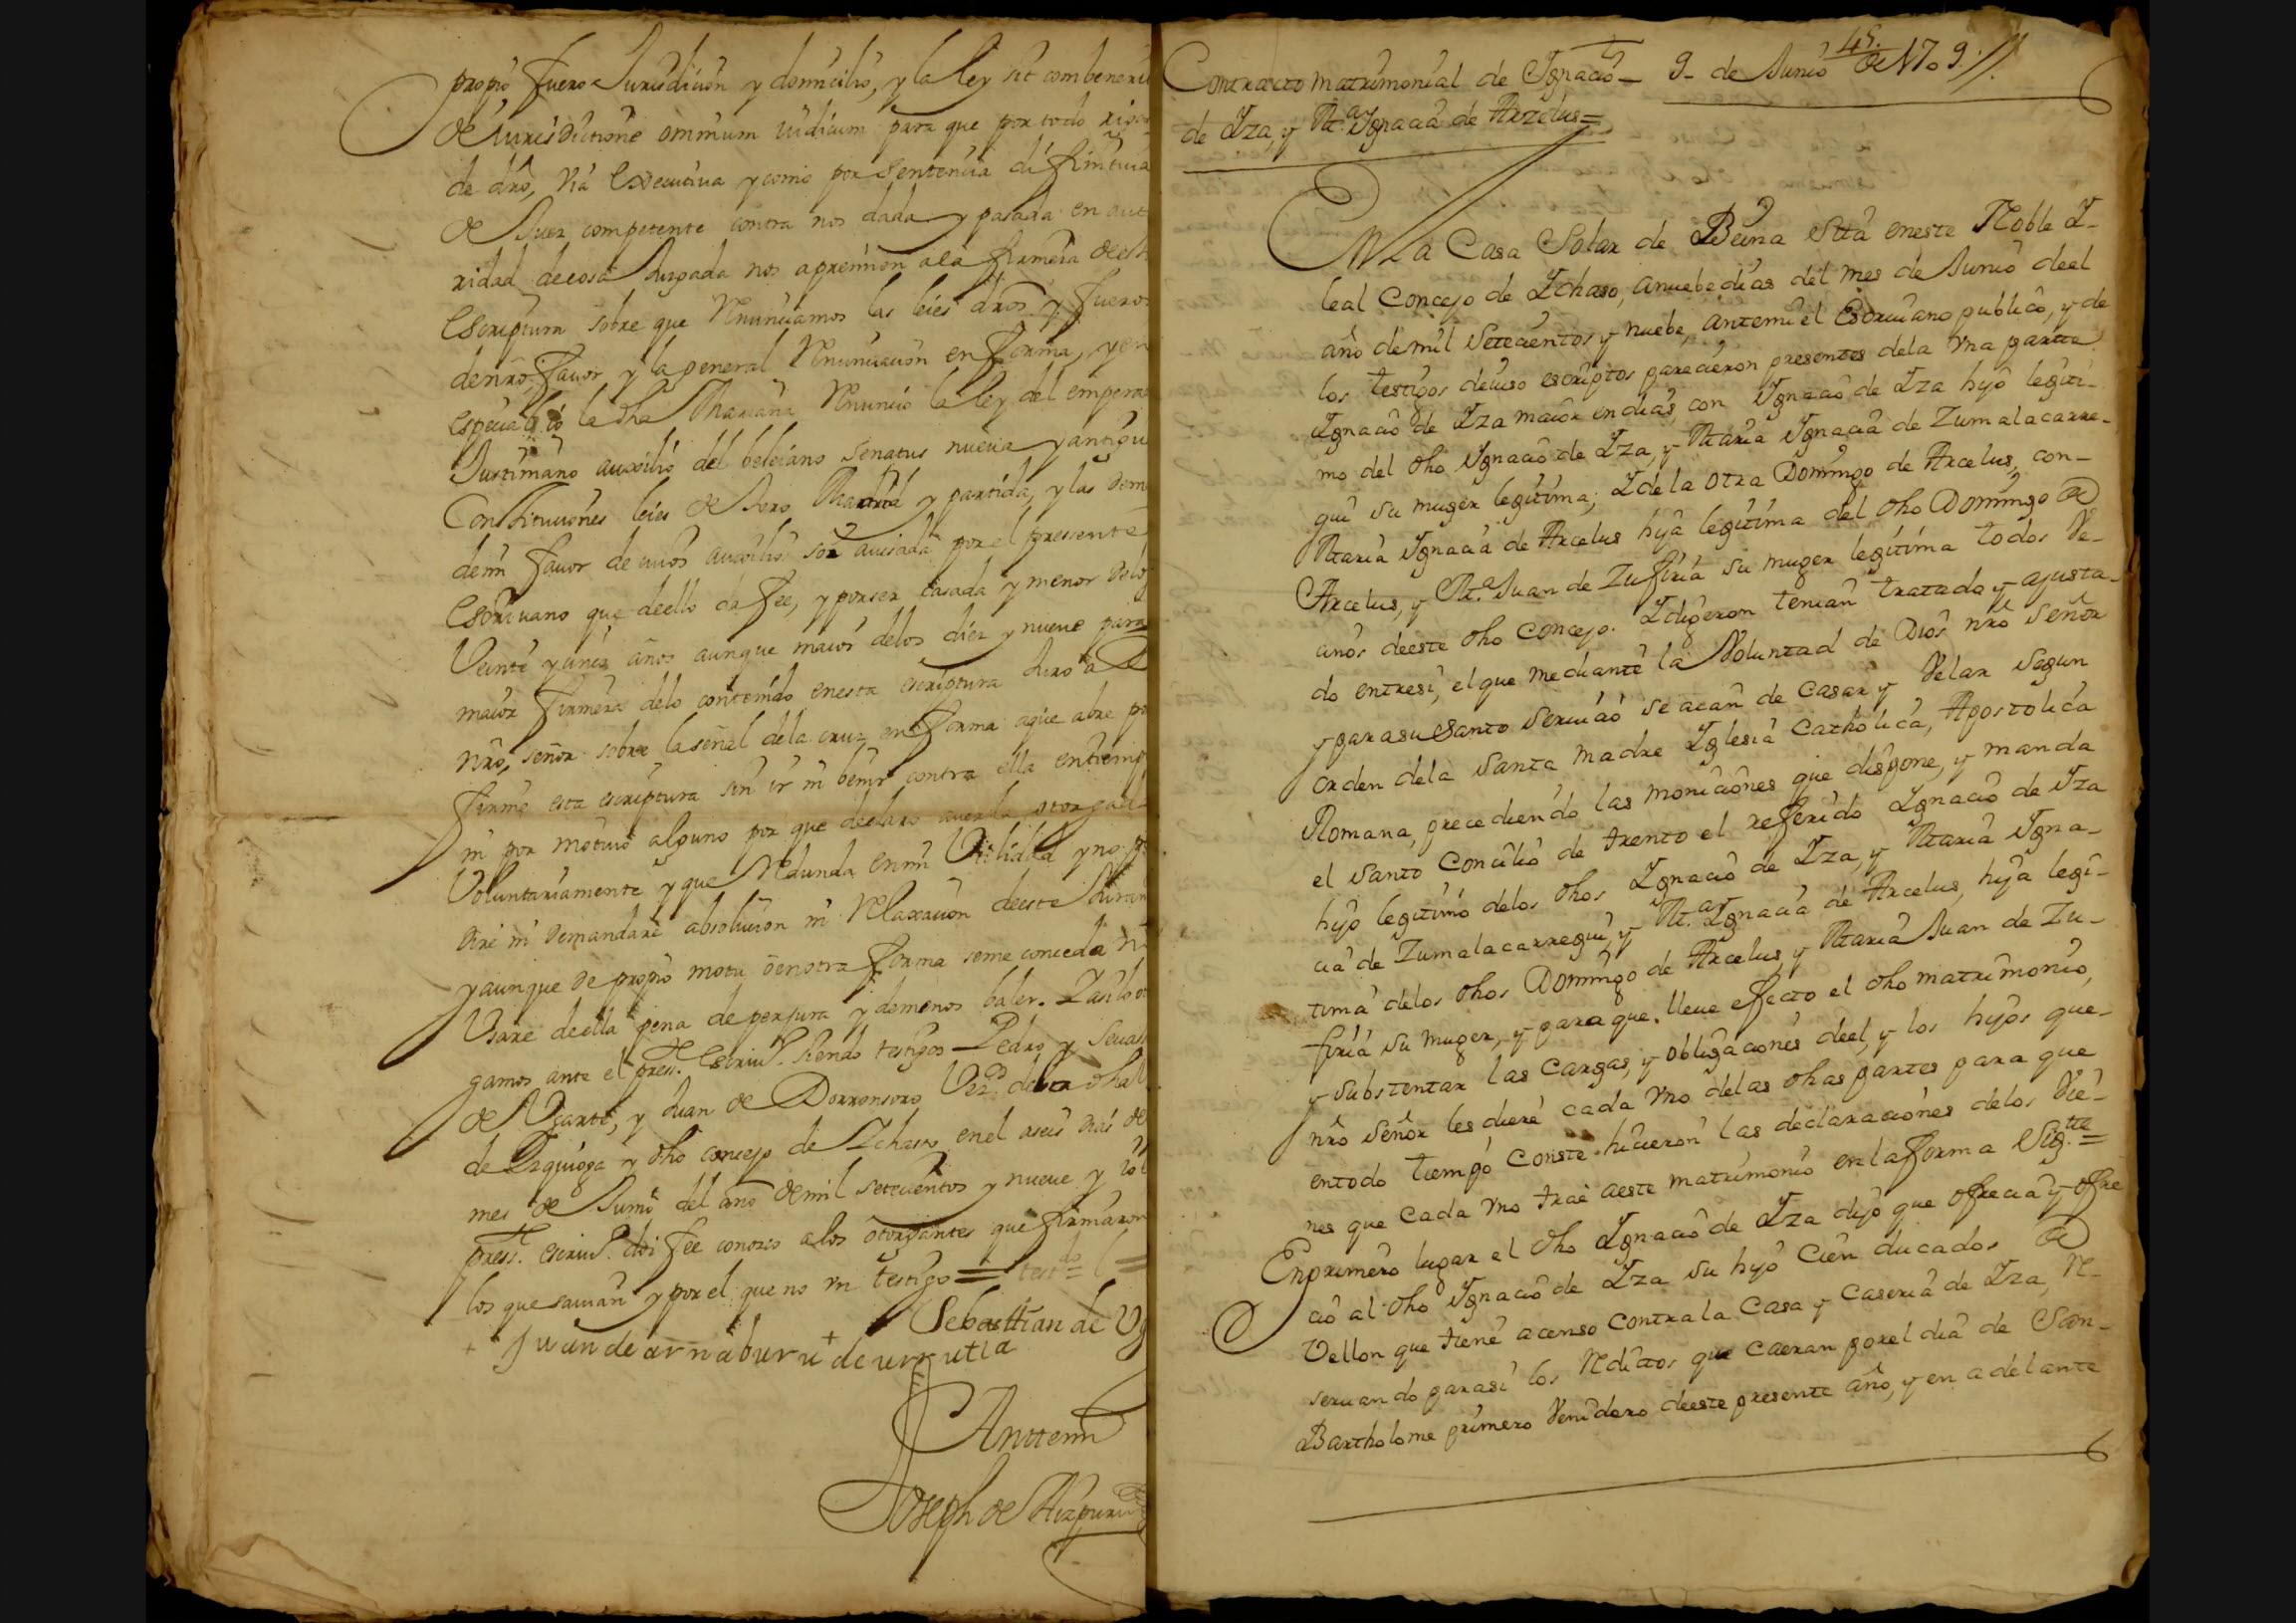 propio fuero Jurisdicion y domicilio, y la ley sit combenerit
de Jurisdictione omnium iudicum para que por todo rigor
de dro, via executiva y como por sentencia difinitiua
de Juez competente contra nos dada y pasada en auto
ridad de cosa Juzgada nos apremien a la firmeza de est
Escriptura sobre que Renunciamos las leies dros. y fueros
de nro, fauor y la general Renunciacion en forma, y en
especial io la dha Mariana Renuncio la ley del empera
Justiniano auxilio del beleiano senatus nueua y antigu
Constituciones leies de toro Madrid y partida, y las dem
de mi fauor de cuios auxilios soi auisada por el pressente
escriuano que de ello da fee, y por ser casada y menor de los
Veinte y cinco años aunque maior de los diez y nueue para
maior firmeza de lo contenido en esta escriptura Juro a D
nro, señor sobre la señal de la cruz en forma que abre po
firme esta escriptura sin ir ni benir contra ella en tiemp
ni por motiuo alguno por que declaro auerla otorgad
Voluntariamente y que Redunda en mi Vtilidad y no p
dire ni demandare absolucion ni Relaxacion de este Juram
y aunque de propio motu o en otra forma se me conceda n
Vsare de ella pena de perjura y de menos baler. Y asi lo ot
gamos ante el press.te escriu.º siendo testigos Pedro y Seuas
de Vgarte, y Juan de Dorronsoro Vez.os de la dha
de Ezquioga y dho concejo de Ichaso, en el a seis dias de
mes de Junio del año de mil setecientos y nueue y io l
press.te escriu.º doi fee conozco a los otorgantes que firmaron
los que sauian y por el que no vn testigo = test.do l =
+ Juan de arnaburu + de urrutia Sebasttian de Vg
Anttemi
Joseph de Aizpuru
45.
Contracto matrimonial de Ignacio — 9 - de Junio de 1709.//.
de Yza, y M.a Ygnacia de Arzelus =
En La Casa Solar de Beina sitta en este Noble Y-
leal Concejo de Ychaso, a nuebe dias del mes de Junio de el
año de mil setecientos y nuebe, ante mi el Escriuano publico, y de
los testigos de iuso escriptos parecieron presentes de la vna partte
Ygnacio de Yza maior en dias, con Ygnacio de Yza hijo legiti-
mo del dho Ygnacio de Yza, y Maria Ygnacia de Zumalacarre-
gui su muger legitima; Y de la otra Domingo de Arcelus, con-
Maria Ygnacia de Arcelus hija legitima del dho Domingo de
Arcelus, y M.a Juan de Zufiria su muger legitima todos Ve-
cinos de este dho concejo. Y digeron tenian tratado y ajusta-
do entre si, el que mediante la Voluntad de Dios nro señor
y para su santo seruicio se aian de casar y Velar segun
orden de la santa madre Yglesia Catholica, Apostolica
Romana, precediendo las moniciones que dispone, y manda
el santo Concilio de trento el referido Ygnacio de Yza
hijo legitimo de los dhos Ygnacio de Yza, y Maria Ygna-
cia de Zumalacarregui, y M.a Ygnacia de Arcelus, hija legi-
tima de los dhos Domingo de Arcelus, y Maria Juan de Zu-
firia su muger, y para que lleue efecto el dho matrimonio,
y substentar las cargas, y obligaciones de el, y los hijos que-
nro señor les diere cada vno de las dhas partes para que
en todo tiempo conste hicieron las declaraciones de los Vie-
nes que cada vno trae a este matrimonio en la forma Sig.tte =
En primero lugar el dho Ygnacio de Yza dijo que ofrecia y ofre
cio al dho Ygnacio de Yza su hijo Cien ducados de
Vellon que tiene a censo contra la Casa y Caseria de Yza, Re-
seruando para si los Reditos que caeran por el dia de San-
Bartholome primero Venidero de este presente año, y en adelante